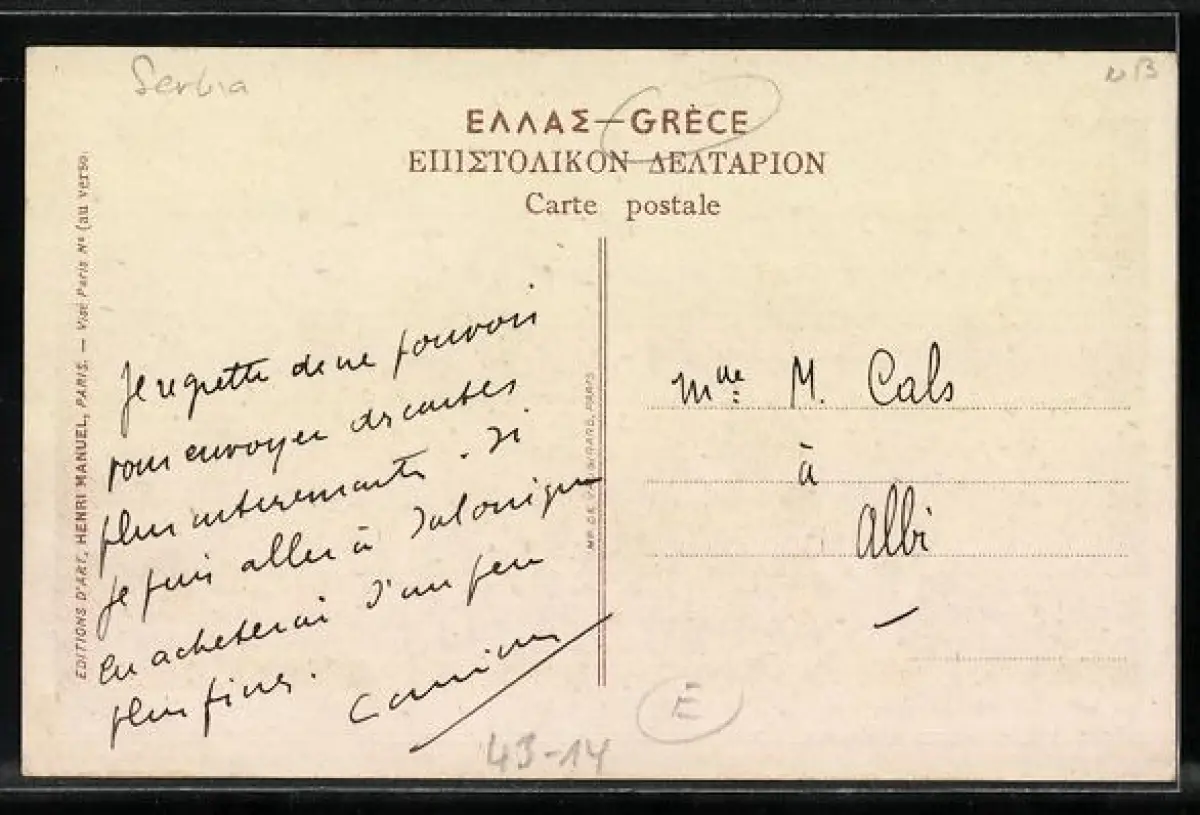 Serbia
ΕΛΛΑΣ—GRÈCE
ΕΠΙΣΤΟΛΙΚΟΝ ΔΕΛΤΑΡΙΟΝ
Carte postale
EDITIONS D'ART, HENRI MANUEL, PARIS. — Visé Paris Nº (au verso)
Je regrette de ne pouvoir
vous envoyer des cartes
plus intéressantes. Si
je puis aller à Salonique
en achèterai d'un peu
plus fines.
PARIS
Mlle M. Cals
à
Albi
E
43-14